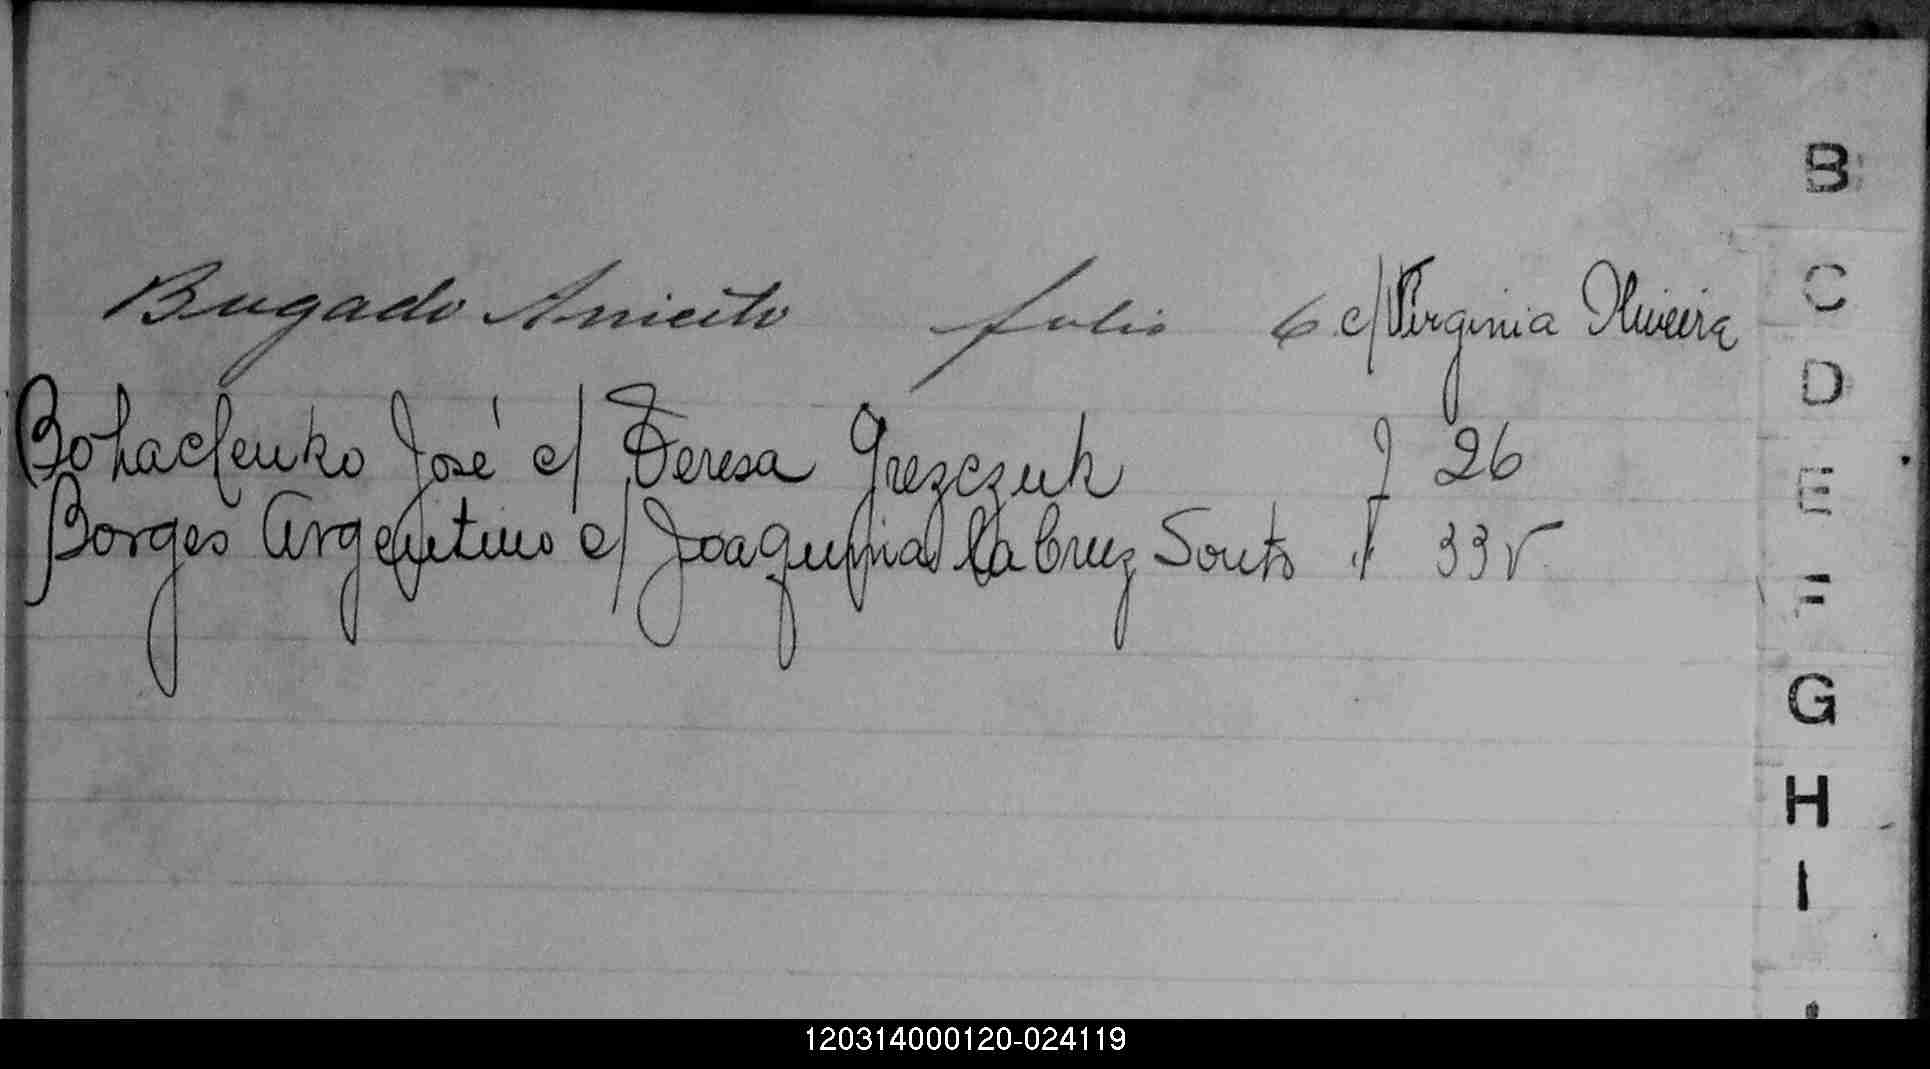 B
Bugado Aniceto folio 6 c/ Virginia Oliveira
C
D
Bohaclenko José c/ Teresa Grezczuk f 26
E
Borges Argentino c/ Joaquina la Cruz Souto f 33v
F
G
H
I
120314000120-024119